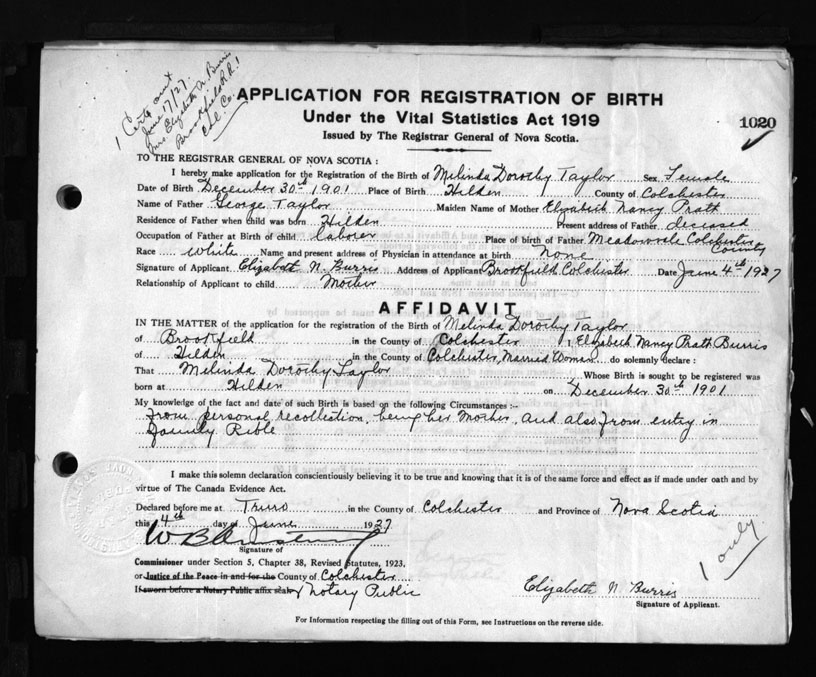 1 Certf sent
June 17/27.
Mrs Elizabeth N. Burris
Brookfield R.R.1
Col. Co.
APPLICATION FOR REGISTRATION OF BIRTH
Under the Vital Statistics Act 1919
1020
Issued by The Registrar General of Nova Scotia.
TO THE REGISTRAR GENERAL OF NOVA SCOTIA:
I hereby make application for the Registration of the Birth of Melinda Dorothy Taylor Sex Female
Date of Birth December 30th 1901 Place of Birth Hilden County of Colchester
Name of Father George Taylor Maiden Name of Mother Elizabeth Nancy Pratt
Residence of Father when child was born Hilden Present address of Father deceased
Occupation of Father at Birth of child laborer Place of birth of Father Meadowvale Colchester County
Race White Name and present address of Physician in attendance at birth None
Signature of Applicant Elizabeth N. Burris Address of Applicant Brookfield Colchester Date June 4th 1927
Relationship of Applicant to child Mother
AFFIDAVIT
IN THE MATTER of the application for the registration of the Birth of Melinda Dorothy Taylor
of Brookfield in the County of Colchester I, Elizabeth Nancy Pratt Burris
of Hilden in the County of Colchester, Married Woman do solemnly declare:
That Melinda Dorothy Taylor Whose Birth is sought to be registered was
born at Hilden on December 30th 1901
My knowledge of the fact and date of such Birth is based on the following Circumstances:-
From personal recollection, being her Mother, and also from entry in
Family Bible
I make this solemn declaration conscientiously believing it to be true and knowing that it is of the same force and effect as if made under oath and by
virtue of The Canada Evidence Act.
Declared before me at Truro in the County of Colchester and Province of Nova Scotia
this 4th day of June 1927
Signature of
Commissioner under Section 5, Chapter 38, Revised Statutes, 1923.
or Justice of the Peace in and for the County of Colchester
If sworn before a Notary Public affix seal Notary Public
1 only
Elizabeth N. Burris
Signature of Applicant.
For Information respecting the filling out of this Form, see Instructions on the reverse side.